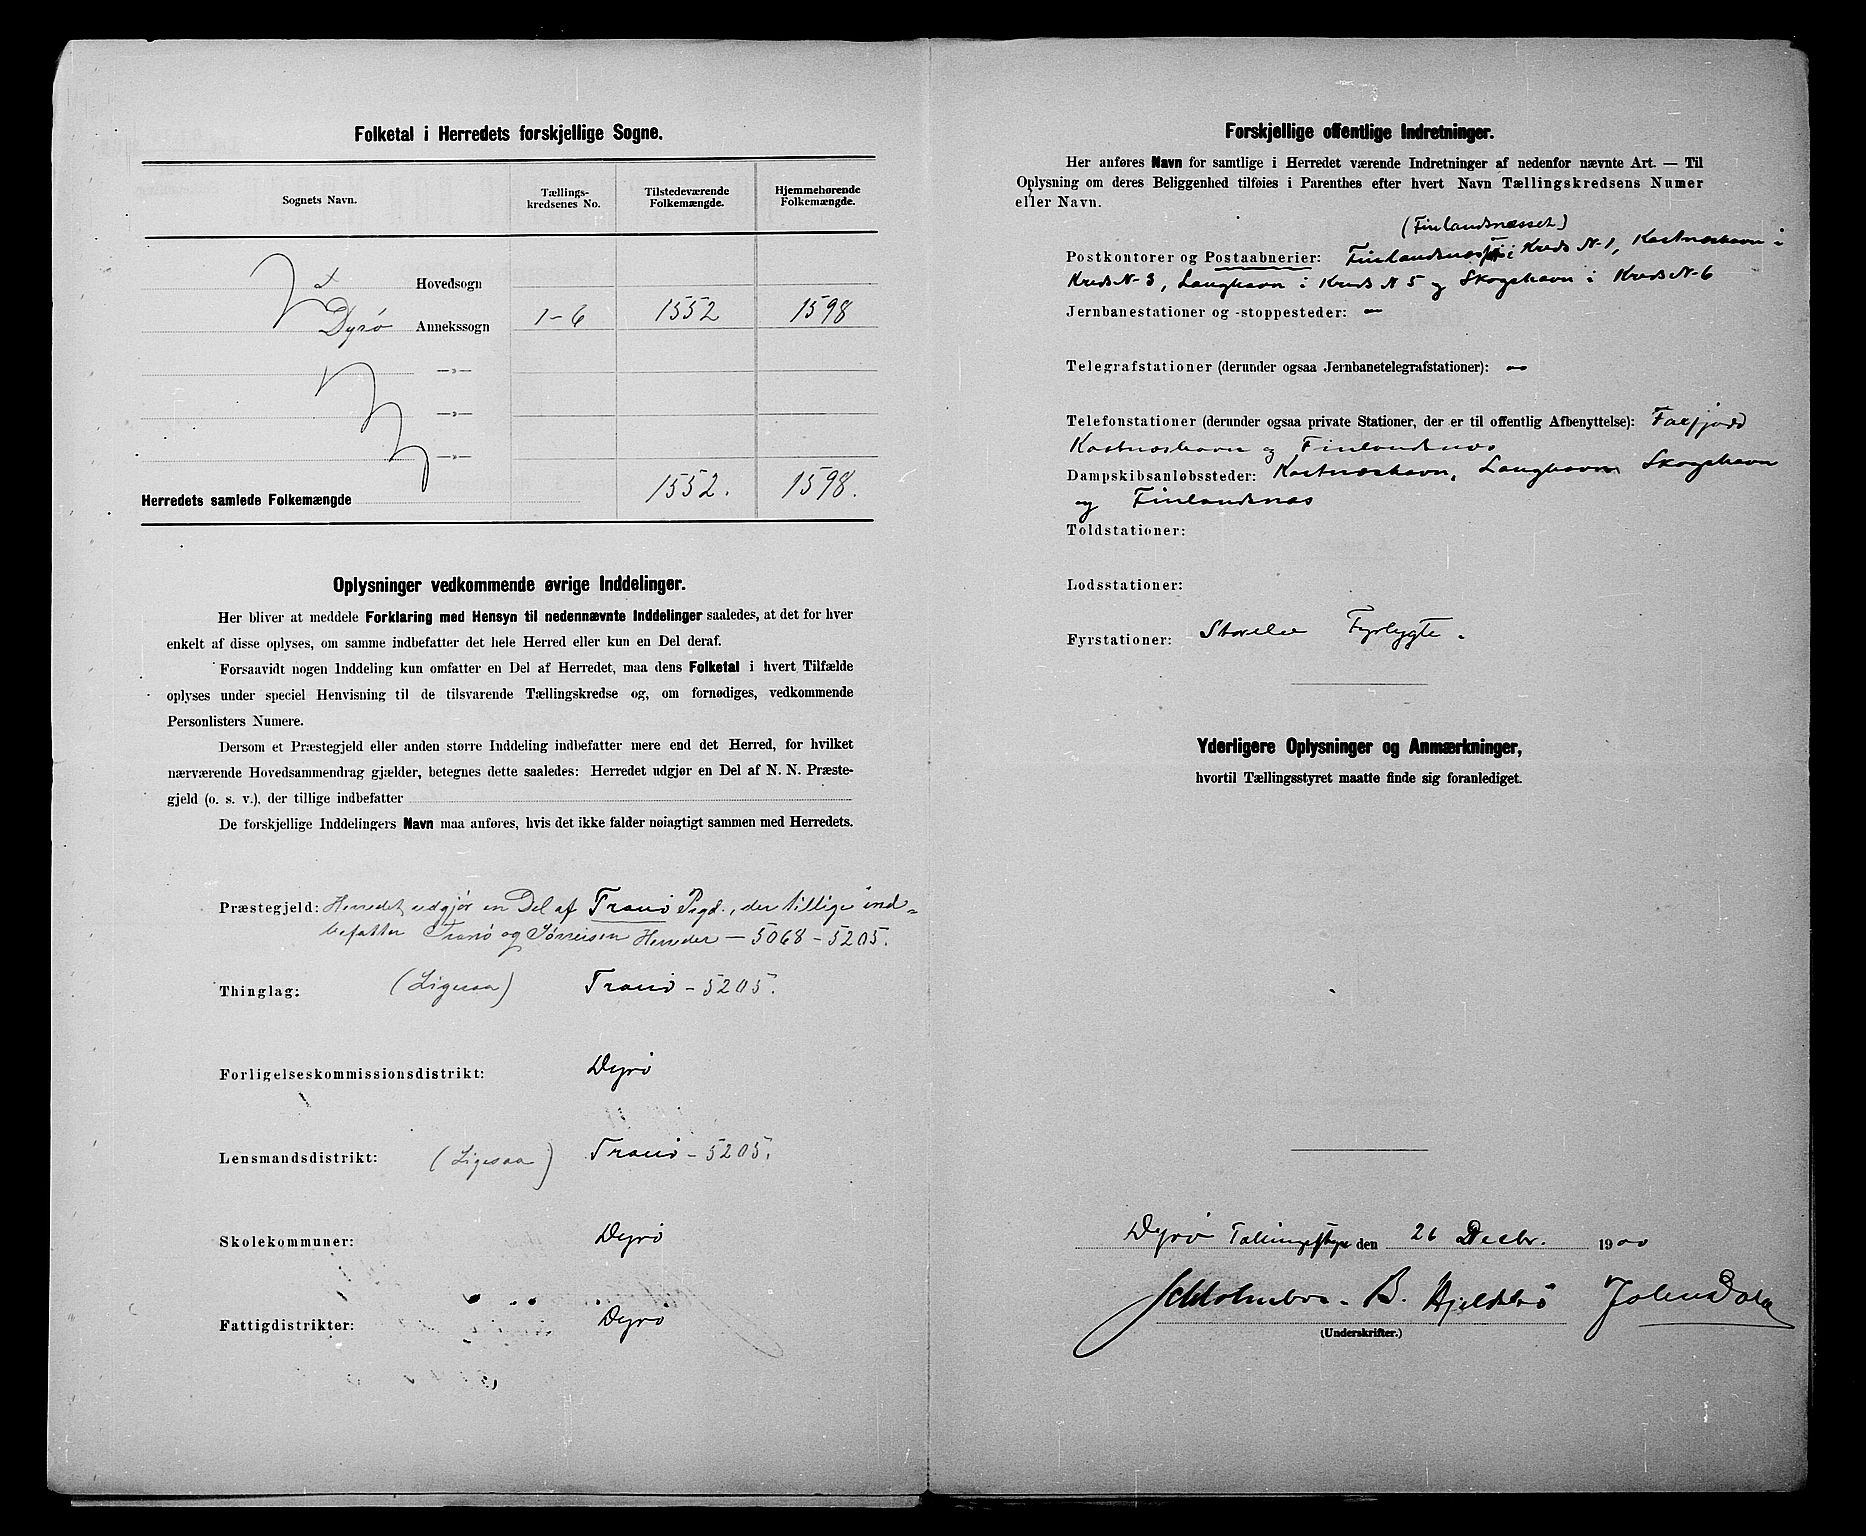 Folketal i Herredets forskjellige Sogne.
Sognets Navn.
Tællings-
kredsenes No.
Tilstedeværende
Folkemængde.
Hjemmehørende
Folkemængde.
Hovedsogn
Dyrø Annekssogn 1-6 1552 1598
—„—
—„—
—„—
Herredets samlede Folkemængde 1552. 1598.
Oplysninger vedkommende øvrige Inddelinger.
Her bliver at meddele Forklaring med Hensyn til nedennævnte Inddelinger saaledes, at det for hver
enkelt af disse oplyses, om samme indbefatter det hele Herred eller kun en Del deraf.
Forsaavidt nogen Inddeling kun omfatter en Del af Herredet, maa dens Folketal i hvert Tilfælde
oplyses under speciel Henvisning til de tilsvarende Tællingskredse og, om fornødiges, vedkommende
Personlisters Numere.
Dersom et Præstegjeld eller anden større Inddeling indbefatter mere end det Herred, for hvilket
nærværende Hovedsammendrag gjælder, betegnes dette saaledes: Herredet udgjør en Del af N. N. Præste-
gjeld (o. s. v.), der tillige indbefatter
De forskjellige Inddelingers Navn maa anføres, hvis det ikke falder nøiagtigt sammen med Herredets.
Præstegjeld: Herredet udgjør en Del af Tranø Prgd., der tillige ind-
befatter Tranø og Sørreisen Herreder — 5068 - 5205.
Thinglag: (Ligesaa) Tranø - 5205.
Forligelseskommissionsdistrikt: Dyrø
Lensmandsdistrikt: (Ligesaa) Tranø - 5205.
Skolekommuner: Dyrø
Fattigdistrikter: Dyrø
Forskjellige offentlige Indretninger.
Her anføres Navn for samtlige i Herredet værende Indretninger af nedenfor nævnte Art. — Til
Oplysning om deres Beliggenhed tilføies i Parenthes efter hvert Navn Tællingskredsens Numer
eller Navn.
(Finlandsnæsset)
Postkontorer og Postaabnerier: Finlandsnæs i Kreds N-1, Kastnæshavn i
Kreds N-3, Langhavn i Kreds N 5 og Skogshavn i Kreds N-6
Jernbanestationer og -stoppesteder: —
Telegrafstationer (derunder ogsaa Jernbanetelegrafstationer): —
Telefonstationer (derunder ogsaa private Stationer, der er til offentlig Afbenyttelse): Faxfjord
Kastnæshavn og Finlandsnæs
Dampskibsanløbssteder: Kastnæshavn, Langhavn Skogshavn
og Finlandsnæs
Toldstationer:
Lodsstationer:
Fyrstationer: Fyrlygte.
Yderligere Oplysninger og Anmærkninger,
hvortil Tællingsstyret maatte finde sig foranlediget.
Dyrø Tællingsstyre den 26 Decbr. 1900
B. Hjeldsbø Johns Dale
(Underskrifter.)